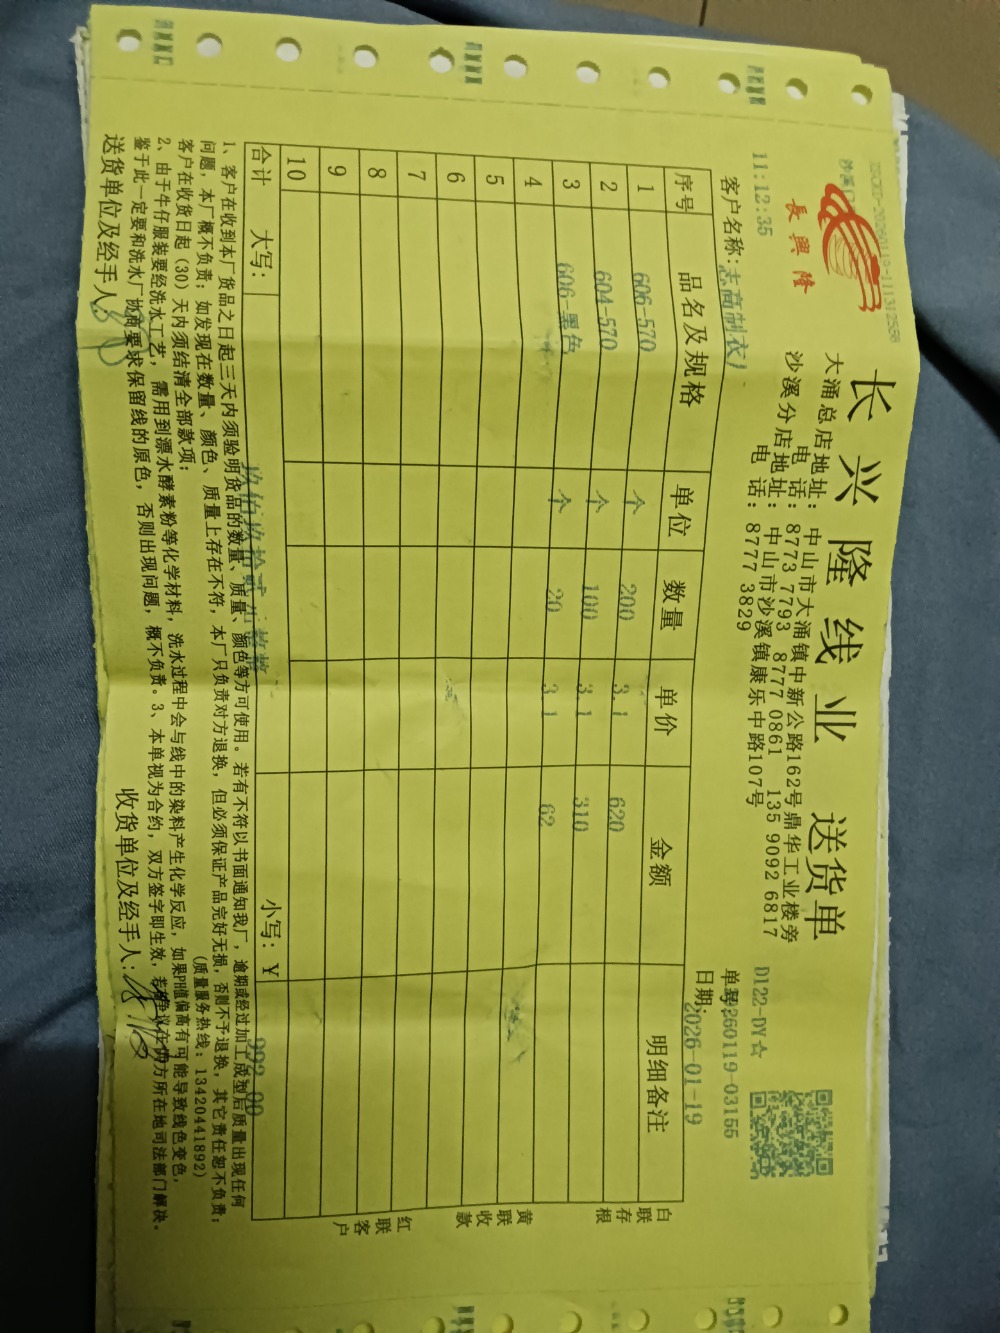 长兴隆线业 送货单
長興隆
大涌总店地址: 中山市大涌镇中新公路162号鼎华工业楼旁
电 话: 8773 7793 8777 0861 135 9092 6817
沙溪分店地址: 中山市沙溪镇康乐中路107号
电 话: 8777 3829
D122-DY☆
11:12:35
单号: 260119-03155
客户名称: 志高制衣
日期: 2026-01-19
序号 品名及规格 单位 数量 单价 金额 明细备注
1 606-570 个 200 3.1 620
2 604-570 个 100 3.1 310
3 606-黑色 个 20 3.1 62
4
5
6
7
8
9
10
合计 大写: 玖佰玖拾贰 小写: ¥ 992.00
白联存根
黄联收款
红联客户
1、客户在收到本厂货品之日起三天内须验明货品的数量、质量、颜色等方可使用。若有不符以书面通知我厂，逾期或经过加工成型后质量出现任何
问题，本厂概不负责；如发现在数量、颜色、质量上存在不符，本厂只负责对方退换，但必须保证产品完好无损，否则不予退换，其它责任恕不负责；
客户在收货日起（30）天内须结清全部款项；
(质量服务热线: 13420441892)
2、由于牛仔服装要经洗水工艺，需用到漂水酵素粉等化学材料，洗水过程中会与线中的染料产生化学反应，如果PH值偏高有可能导致线色变色，
鉴于此一定要和洗水厂协商要求保留线的原色，否则出现问题，概不负责。3、本单视为合约，双方签字即生效，若有争议在卖方所在地司法部门解决。
送货单位及经手人:
收货单位及经手人: